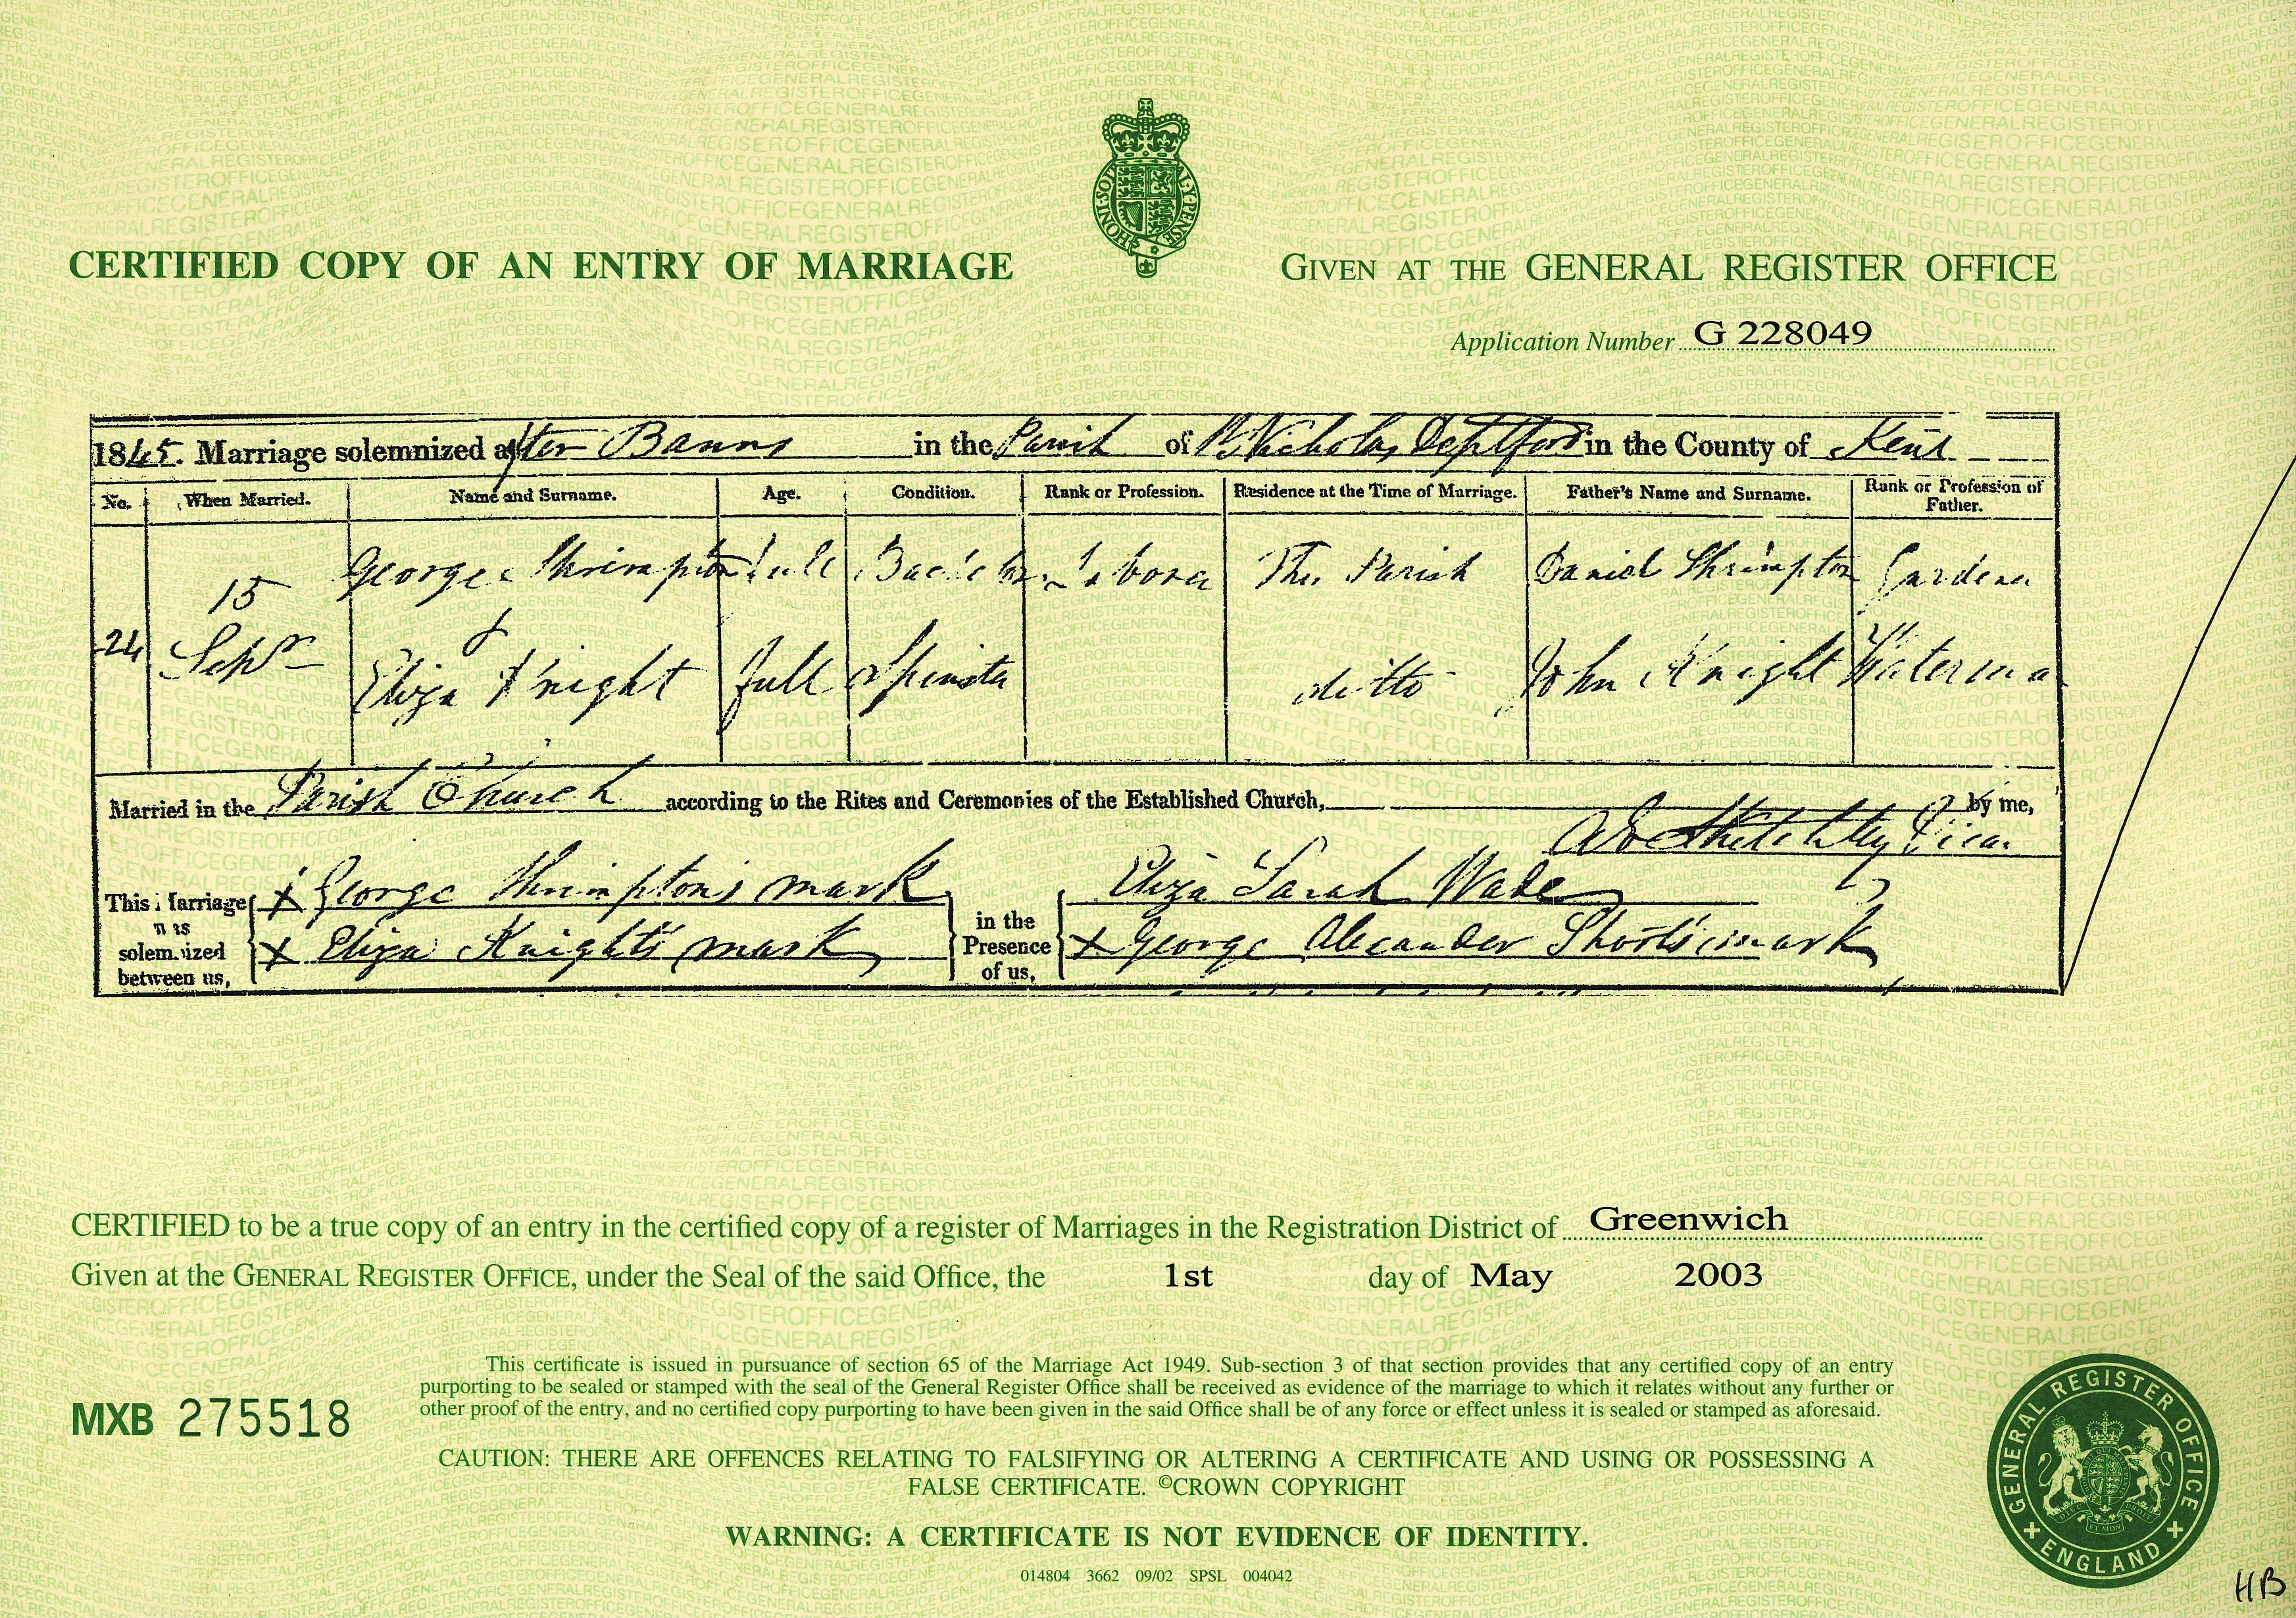 CERTIFIED COPY OF AN ENTRY OF MARRIAGE
HONI SOIT QUI MAL Y PENSE
GIVEN AT THE GENERAL REGISTER OFFICE
Application Number G 228049
1845. Marriage solemnized after Banns in the Parish of St Nicholas Deptford in the County of Kent
No. When Married. Name and Surname. Age. Condition. Rank or Profession. Residence at the Time of Marriage. Father's Name and Surname. Rank or Profession of Father.
24 15 Sepr
George Shrimpton Full Bachelor Laborer This Parish Daniel Shrimpton Gardener
&
Eliza Knight full Spinster ditto John Knight Waterman
Married in the Parish Church according to the Rites and Ceremonies of the Established Church, by me,
Vicar
This Marriage was solemnized between us,
X George Shrimpton's mark
X Eliza Knight's mark
in the Presence of us,
Eliza Sarah Wade
X George Alexander Short's mark
CERTIFIED to be a true copy of an entry in the certified copy of a register of Marriages in the Registration District of Greenwich
Given at the GENERAL REGISTER OFFICE, under the Seal of the said Office, the 1st day of May 2003
This certificate is issued in pursuance of section 65 of the Marriage Act 1949. Sub-section 3 of that section provides that any certified copy of an entry
purporting to be sealed or stamped with the seal of the General Register Office shall be received as evidence of the marriage to which it relates without any further or
other proof of the entry, and no certified copy purporting to have been given in the said Office shall be of any force or effect unless it is sealed or stamped as aforesaid.
MXB 275518
CAUTION: THERE ARE OFFENCES RELATING TO FALSIFYING OR ALTERING A CERTIFICATE AND USING OR POSSESSING A
FALSE CERTIFICATE. ©CROWN COPYRIGHT
WARNING: A CERTIFICATE IS NOT EVIDENCE OF IDENTITY.
014804 3662 09/02 SPSL 004042
GENERAL REGISTER OFFICE
ENGLAND
HB